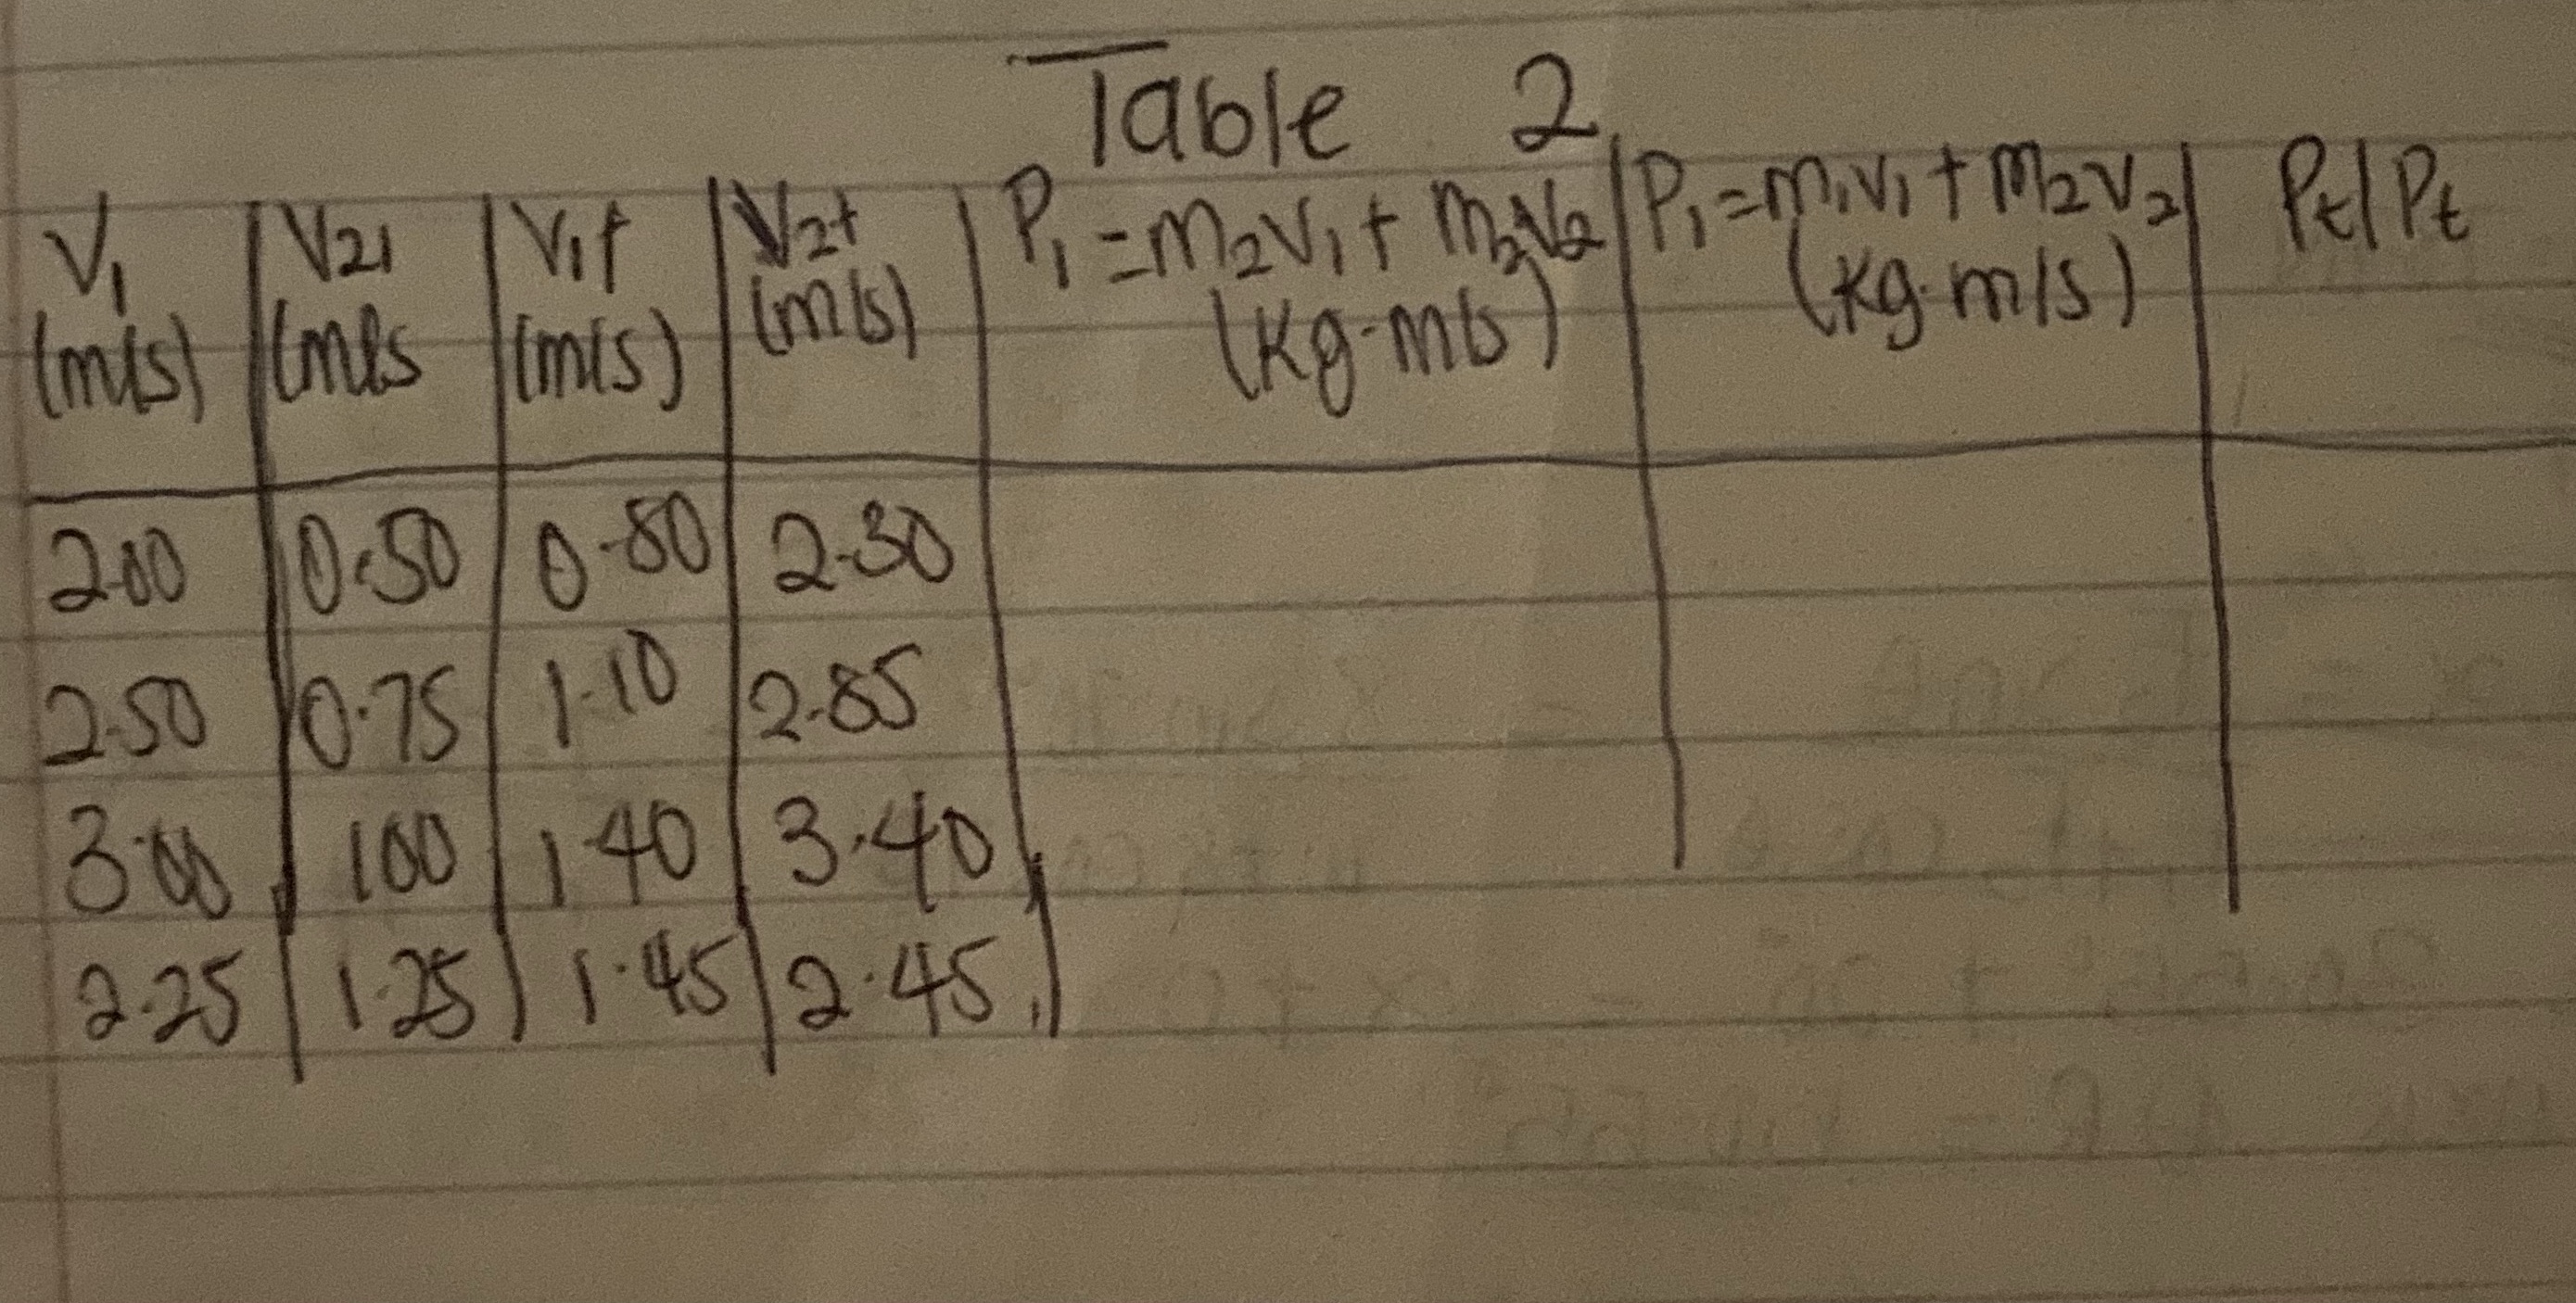 Table 2
V₁ (m/s) | V₂₁ (m/s | V₁f (m/s) | V₂f (m/s) | P₁ = m₂v₁ + m₂v₂ (kg·m/s) | P₁ = m₁v₁ + m₂v₂ (kg·m/s) | Pt/Pt
2.00 | 0.50 | 0.80 | 2.30
2.50 | 0.75 | 1.10 | 2.85
3.00 | 100 | 1.40 | 3.40
2.25 | 1.25 | 1.45 | 2.45